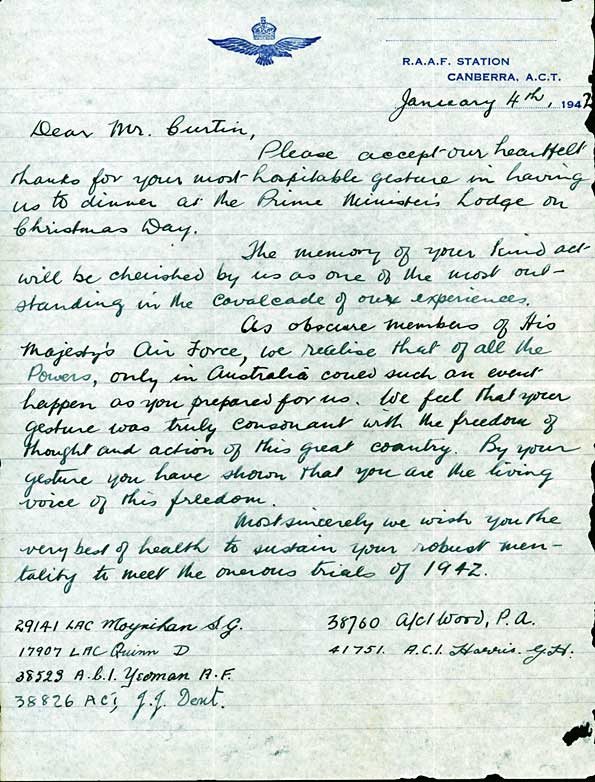 R.A.A.F. STATION
CANBERRA, A.C.T.
January 4th, 1942
Dear Mr. Curtin,
Please accept our heartfelt
thanks for your most hospitable gesture in having
us to dinner at the Prime Minister's Lodge on
Christmas Day.
The memory of your kind act
will be cherished by us as one of the most out-
standing in the cavalcade of our experiences.
As obscure members of His
Majesty's Air Force, we realise that of all the
Powers, only in Australia could such an event
happen as you prepared for us. We feel that your
gesture was truly consonant with the freedom of
thought and action of this great country. By your
gesture you have shown that you are the living
voice of this freedom.
Most sincerely we wish you the
very best of health to sustain your robust men-
tality to meet the onerous trials of 1942.
29141 LAC Moynihan S.G.
38760 A/C1 Wood, P.A.
17907 LAC Quinn D
41751. A.C.1. Harris. G.H.
38529 A.C.1. Yeoman A.F.
38826 AC1, J.J. Dent.